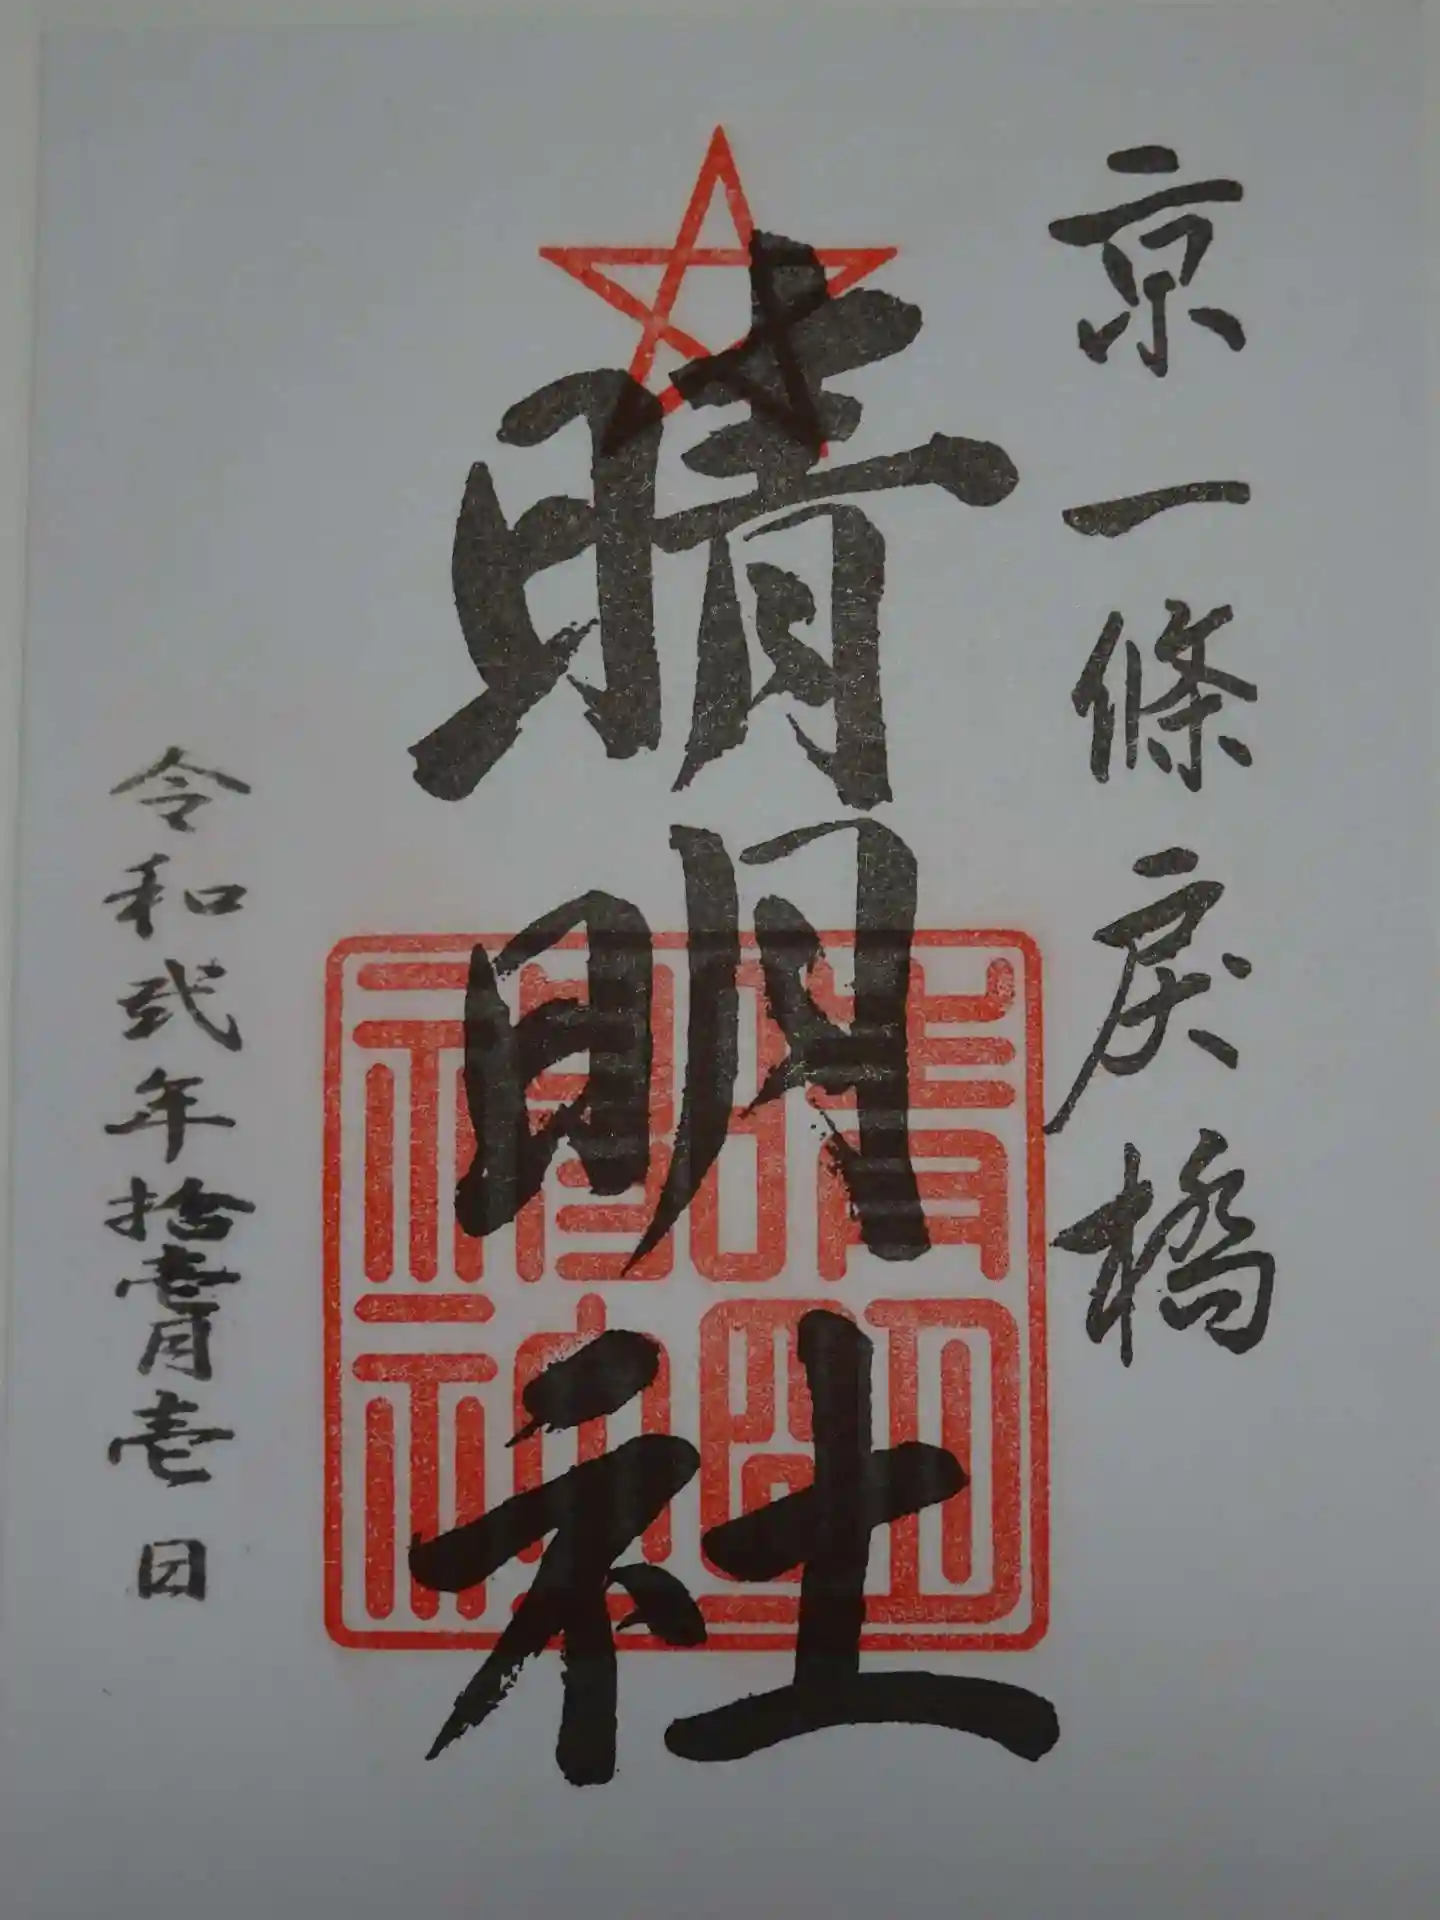 京一條戻橋
晴明社
晴明神社
令和弐年拾壹月壱日